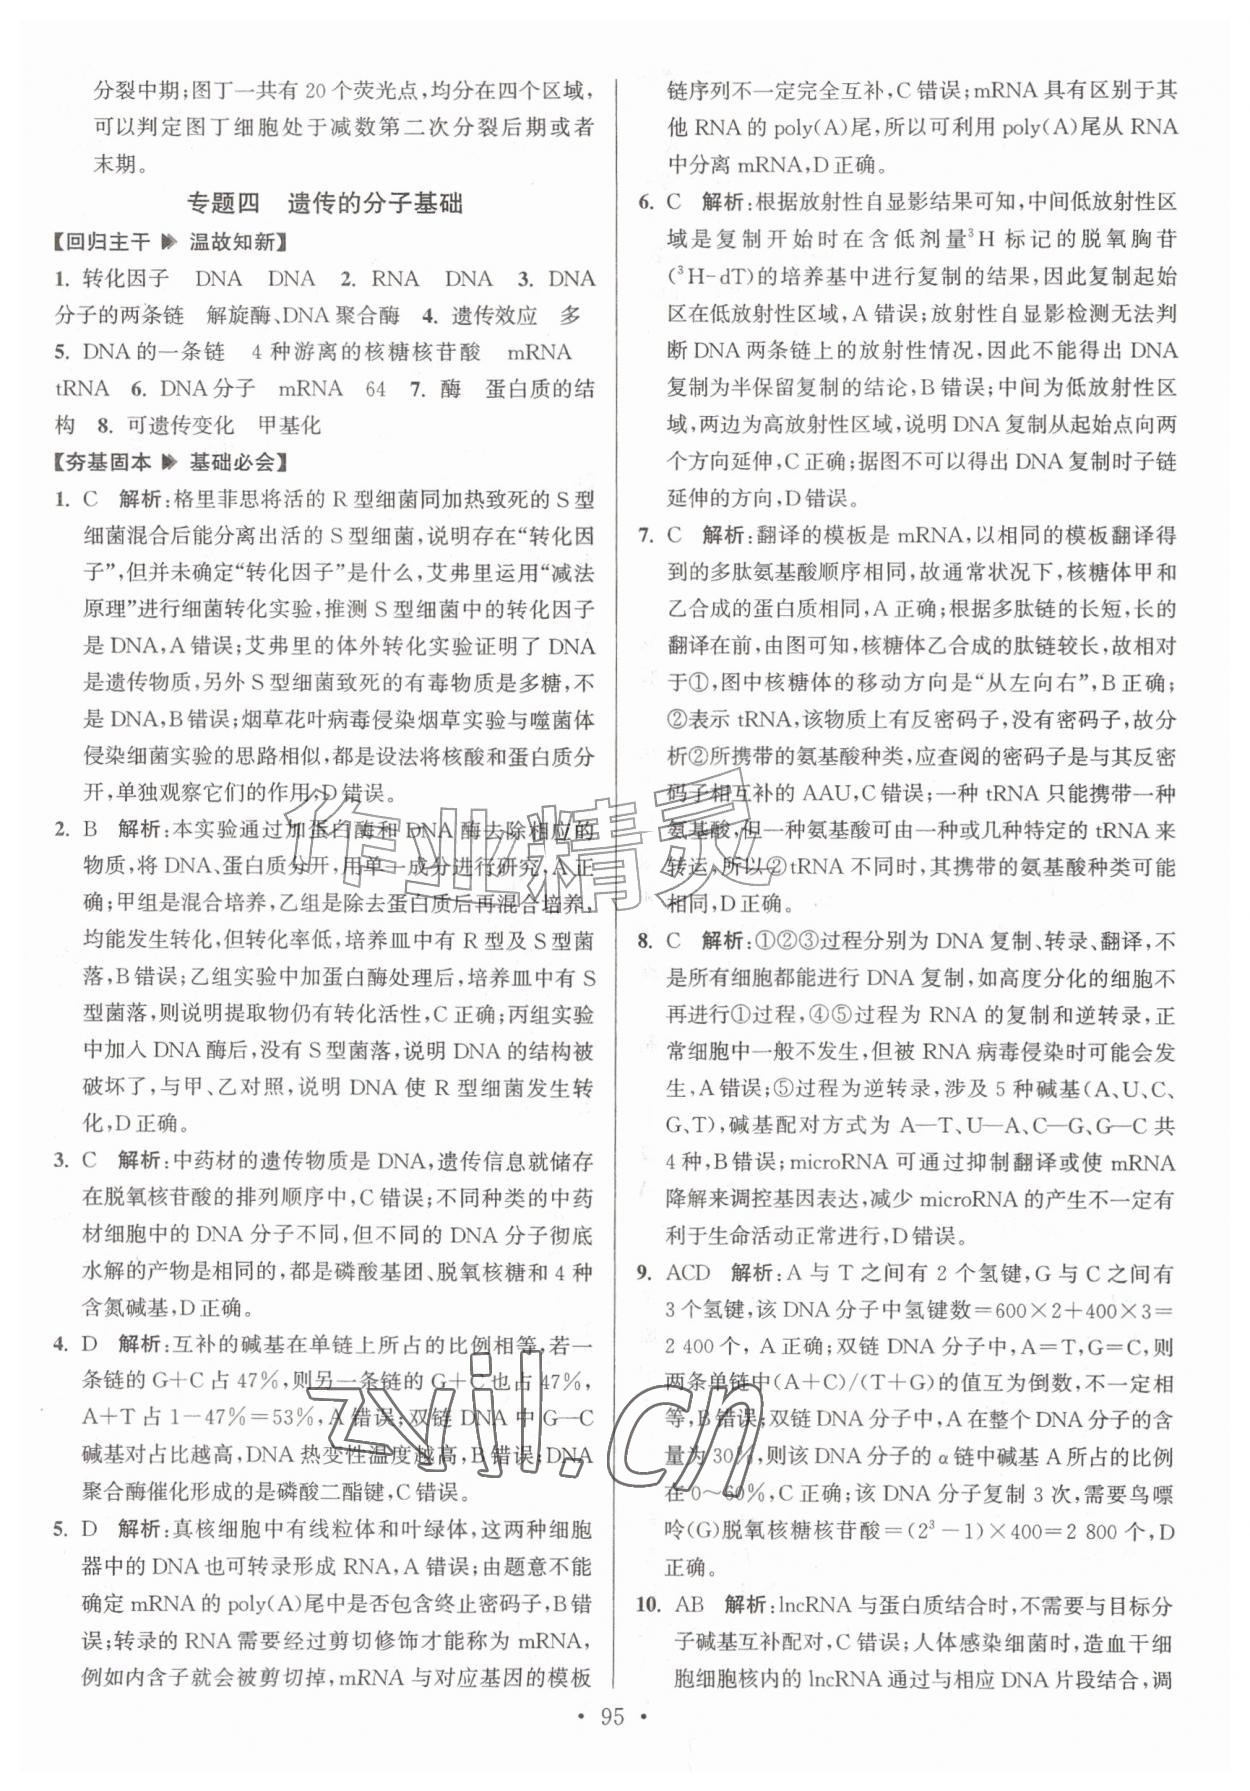 分裂中期;图丁一共有 20 个荧光点,均分在四个区域,
可以判定图丁细胞处于减数第二次分裂后期或者
末期。
专题四 遗传的分子基础
【回归主干 ▶ 温故知新】
1. 转化因子 DNA DNA 2. RNA DNA 3. DNA
分子的两条链 解旋酶、DNA 聚合酶 4. 遗传效应 多
5. DNA 的一条链 4 种游离的核糖核苷酸 mRNA
tRNA 6. DNA 分子 mRNA 64 7. 酶 蛋白质的结
构 8. 可遗传变化 甲基化
【夯基固本 ▶ 基础必会】
1. C 解析:格里菲思将活的 R 型细菌同加热致死的 S 型
细菌混合后能分离出活的 S 型细菌,说明存在“转化因
子”,但并未确定“转化因子”是什么,艾弗里运用“减法
原理”进行细菌转化实验,推测 S 型细菌中的转化因子
是 DNA,A 错误;艾弗里的体外转化实验证明了 DNA
是遗传物质,另外 S 型细菌致死的有毒物质是多糖,不
是 DNA,B 错误;烟草花叶病毒侵染烟草实验与噬菌体
侵染细菌实验的思路相似,都是设法将核酸和蛋白质分
开,单独观察它们的作用,D 错误。
2. B 解析:本实验通过加蛋白酶和 DNA 酶去除相应的
物质,将 DNA、蛋白质分开,用单一成分进行研究,A 正
确;甲组是混合培养,乙组是除去蛋白质后再混合培养,
均能发生转化,但转化率低,培养皿中有 R 型及 S 型菌
落,B 错误;乙组实验中加蛋白酶处理后,培养皿中有 S
型菌落,则说明提取物仍有转化活性,C 正确;丙组实验
中加入 DNA 酶后,没有 S 型菌落,说明 DNA 的结构被
破坏了,与甲、乙对照,说明 DNA 使 R 型细菌发生转
化,D 正确。
3. C 解析:中药材的遗传物质是 DNA,遗传信息就储存
在脱氧核苷酸的排列顺序中,C 错误;不同种类的中药
材细胞中的 DNA 分子不同,但不同的 DNA 分子彻底
水解的产物是相同的,都是磷酸基团、脱氧核糖和 4 种
含氮碱基,D 正确。
4. D 解析:互补的碱基在单链上所占的比例相等,若一
条链的 G+C 占 47%,则另一条链的 G+C 也占 47%,
A+T 占 1-47%=53%,A 错误;双链 DNA 中 G—C
碱基对占比越高,DNA 热变性温度越高,B 错误;DNA
聚合酶催化形成的是磷酸二酯键,C 错误。
5. D 解析:真核细胞中有线粒体和叶绿体,这两种细胞
器中的 DNA 也可转录形成 RNA,A 错误;由题意不能
确定 mRNA 的 poly(A)尾中是否包含终止密码子,B 错
误;转录的 RNA 需要经过剪切修饰才能称为 mRNA,
例如内含子就会被剪切掉,mRNA 与对应基因的模板
链序列不一定完全互补,C 错误;mRNA 具有区别于其
他 RNA 的 poly(A)尾,所以可利用 poly(A)尾从 RNA
中分离 mRNA,D 正确。
6. C 解析:根据放射性自显影结果可知,中间低放射性区
域是复制开始时在含低剂量³H 标记的脱氧胸苷
(³H-dT)的培养基中进行复制的结果,因此复制起始
区在低放射性区域,A 错误;放射性自显影检测无法判
断 DNA 两条链上的放射性情况,因此不能得出 DNA
复制为半保留复制的结论,B 错误;中间为低放射性区
域,两边为高放射性区域,说明 DNA 复制从起始点向两
个方向延伸,C 正确;据图不可知 DNA 复制时子链
延伸的方向,D 错误。
7. C 解析:翻译的模板是 mRNA,以相同的模板翻译得
到的多肽氨基酸顺序相同,故通常状况下,核糖体甲和
乙合成的蛋白质相同,A 正确;根据多肽链的长短,长的
翻译在前,由图可知,核糖体乙合成的肽链较长,故相对
于①,图中核糖体的移动方向是“从左向右”,B 正确;
②表示 tRNA,该物质上有反密码子,没有密码子,故分
析②所携带的氨基酸种类,应查阅的密码子是与其反密
码子相互补的 AAU,C 错误;一种 tRNA 只能携带一种
氨基酸,但一种氨基酸可由一种或几种特定的 tRNA 来
转运,所以②tRNA 不同时,其携带的氨基酸种类可能
相同,D 正确。
8. C 解析:①②③过程分别为 DNA 复制、转录、翻译,不
是所有细胞都能进行 DNA 复制,如高度分化的细胞不
再进行①过程,④⑤过程为 RNA 的复制和逆转录,正
常细胞中一般不发生,但被 RNA 病毒侵染时可能会发
生,A 错误;⑤过程为逆转录,涉及 5 种碱基(A、U、C、
G、T),碱基配对方式为 A—T、U—A、C—G、G—C 共
4 种,B 错误;microRNA 可通过抑制翻译或使 mRNA
降解来调控基因表达,减少 microRNA 的产生不一定有
利于生命活动正常进行,D 错误。
9. ACD 解析:A 与 T 之间有 2 个氢键,G 与 C 之间有
3 个氢键,该 DNA 分子中氢键数=600×2+400×3=
2 400 个,A 正确;双链 DNA 分子中,A=T,G=C,则
两条单链中(A+C)/(T+G)的值互为倒数,不一定相
等,B 错误;双链 DNA 分子中,A 在整个 DNA 分子的含
量为 30%,则该 DNA 分子的 α 链中碱基 A 所占的比例
在 0~60%,C 正确;该 DNA 分子复制 3 次,需要鸟嘌
呤(G)脱氧核糖核苷酸=(2³-1)×400=2 800 个,D
正确。
10. AB 解析:lncRNA 与蛋白质结合时,不需要与目标分
子碱基互补配对,C 错误;人体感染细菌时,造血干细
胞细胞核内的 lncRNA 通过与相应 DNA 片段结合,调
• 95 •
作业精灵
zyjl.cn